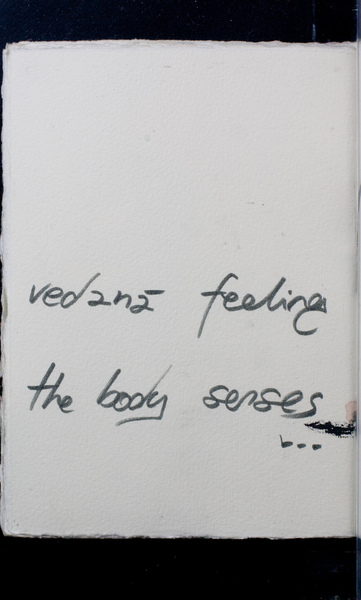 vedanā feeling
the body senses
...